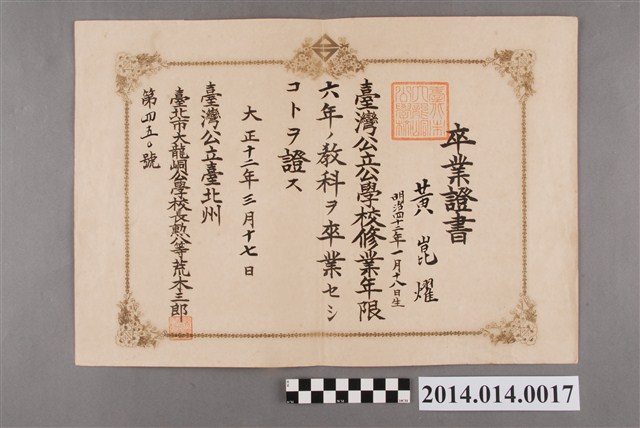 卒業證書
黃崑燿
明治四十二年一月十八日生
臺灣公立公學校修業年限
六年ノ敎科ヲ卒業セシ
コトヲ證ス
大正十二年三月十七日
臺灣公立臺北州
臺北市大龍峒公學校長勲八等荒木三郎
第四五〇號
2014.014.0017